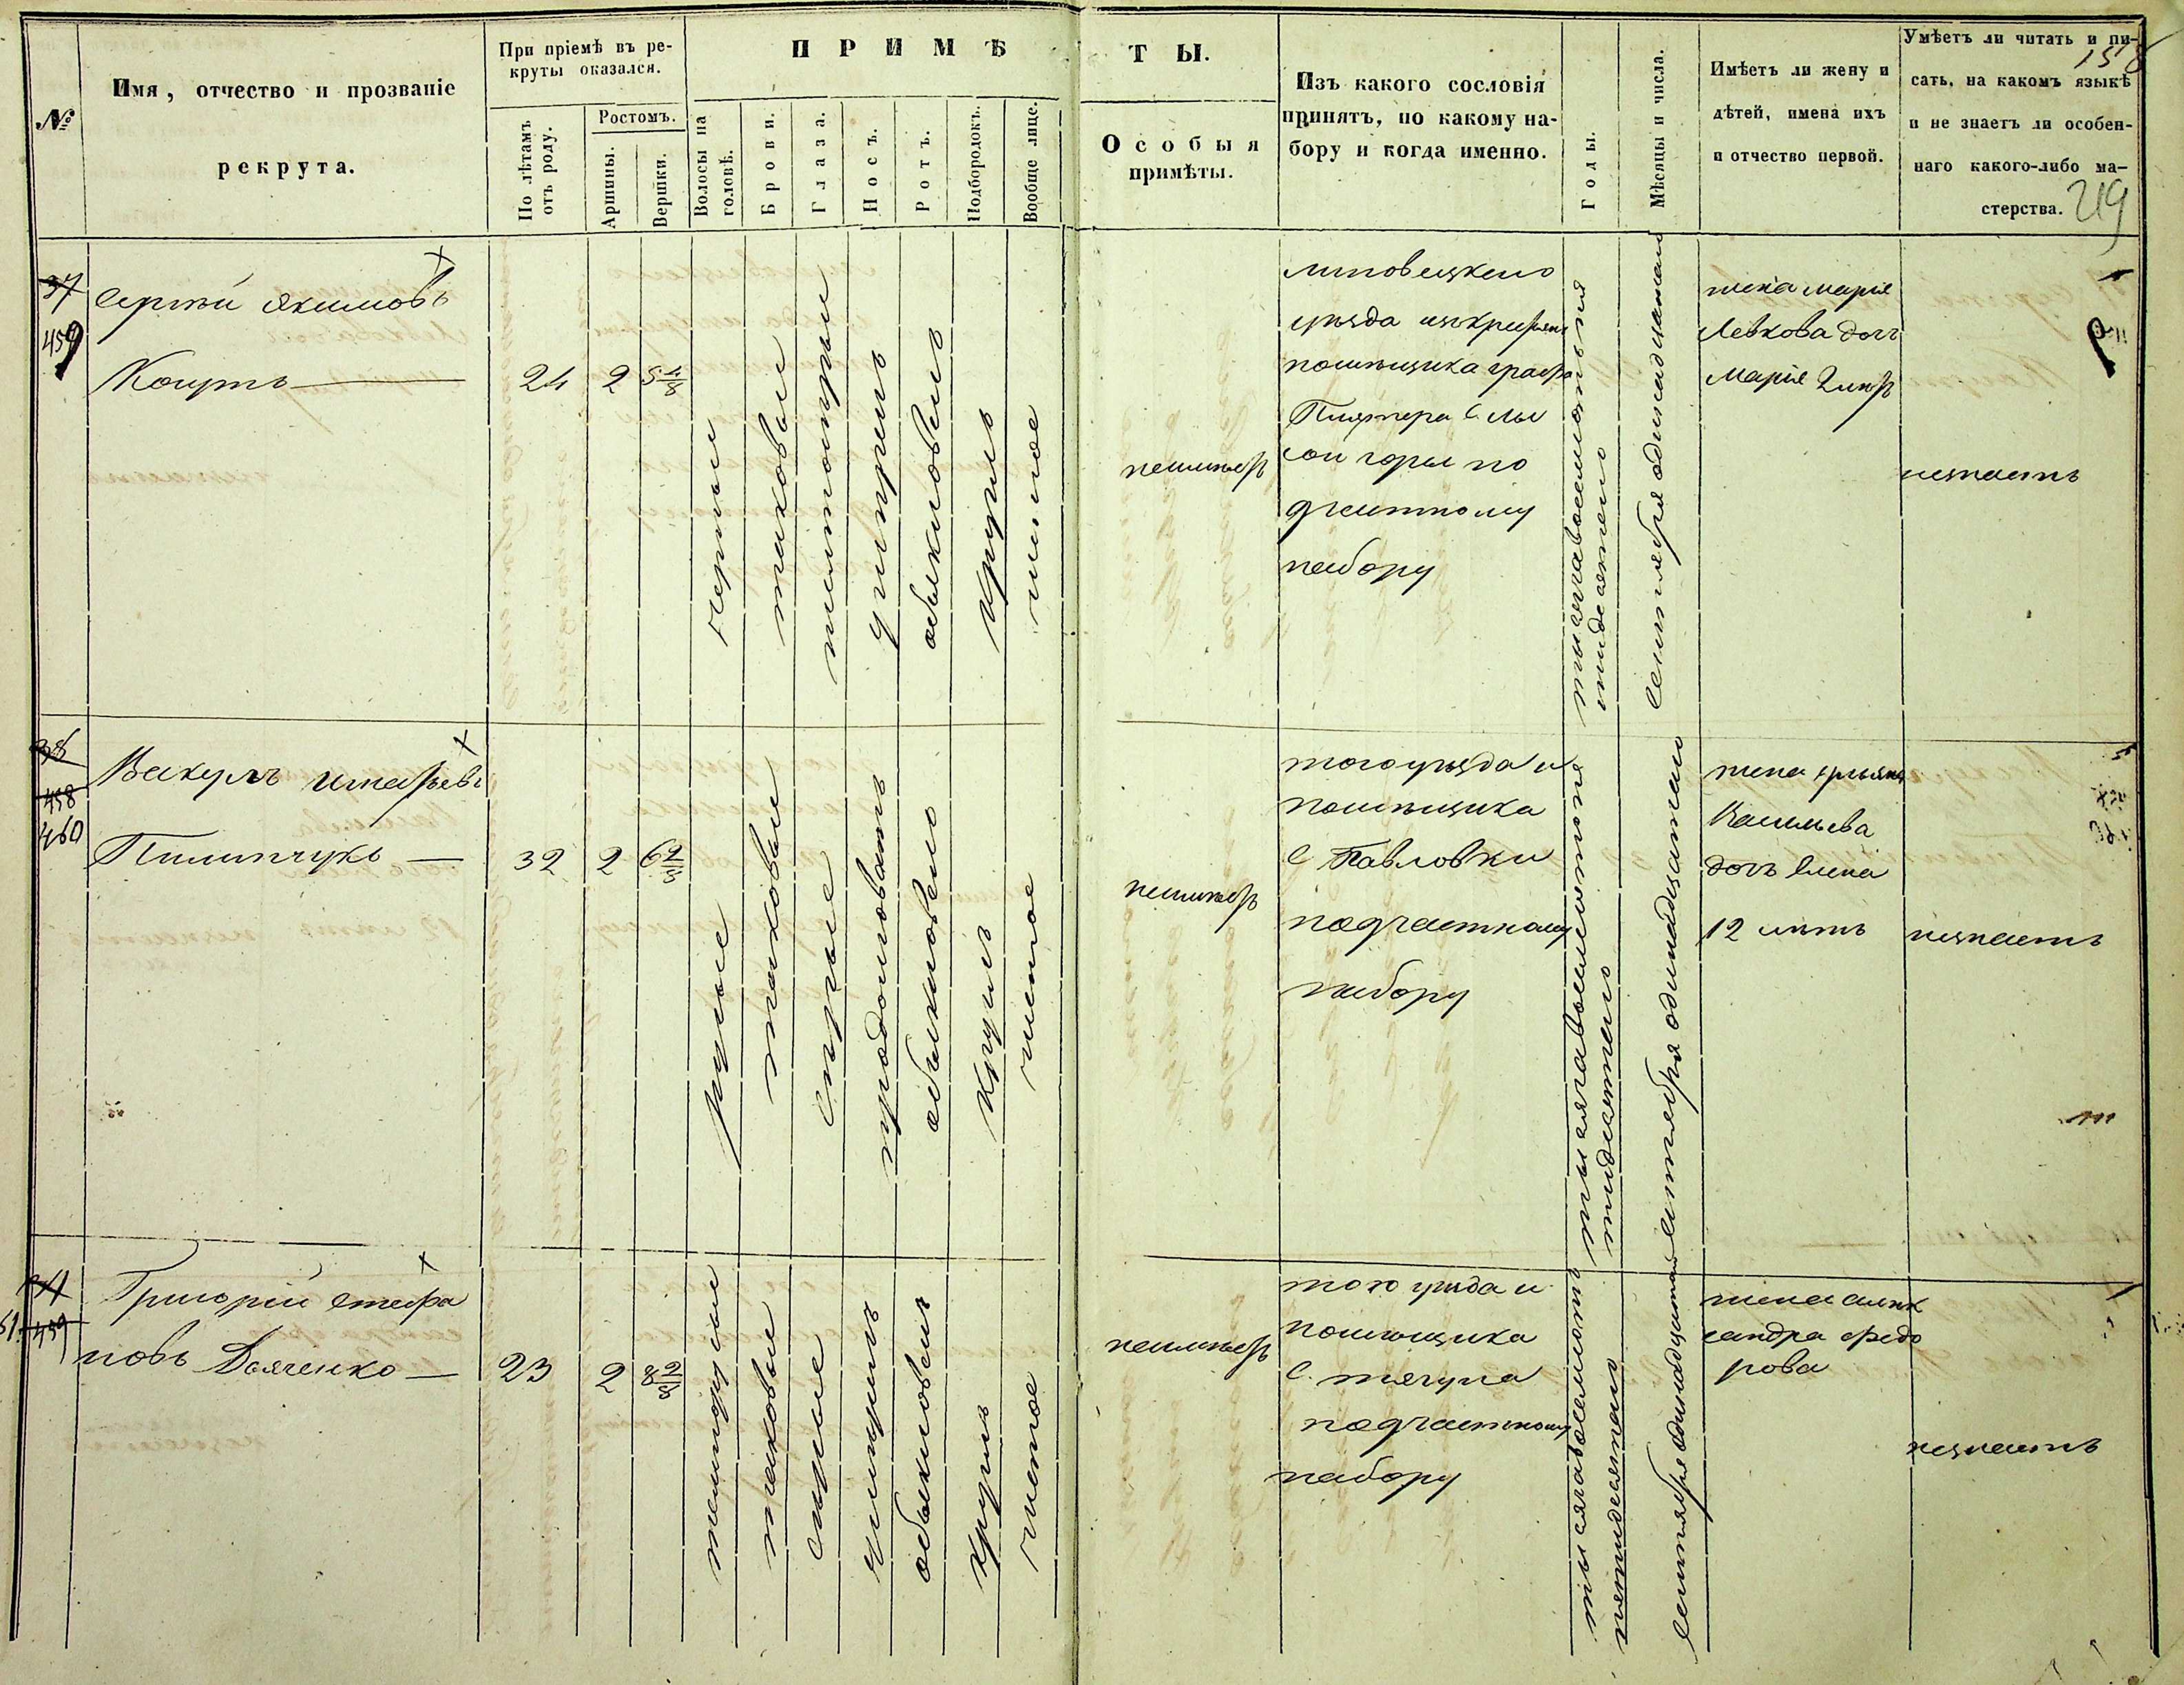 №
Имя, отчество и прозваніе
рекрута.
При пріемѣ въ ре-
круты оказался.
По лѣтамъ
отъ роду.
Ростомъ.
Аршины.
Вершки.
ПРИМѢ
Волосы на
головѣ.
Брови.
Глаза.
Носъ.
Ротъ.
Подбородокъ.
Вообще лице.
ТЫ.
Особыя
примѣты.
Изъ какого сословія
принятъ, по какому на-
бору и когда именно.
Годы.
Мѣсяцы и числа.
Имѣетъ ли жену и
дѣтей, имена ихъ
и отчество первой.
Умѣетъ ли читать и пи-
сать, на какомъ языкѣ
и не знаетъ ли особен-
наго какого-либо ма-
стерства.
219
37
459
Сергѣй Якимовъ
24
2
5 4/8
черные
таковые
умѣренъ
обыкновенъ
круглъ
чистое
неимѣетъ
Липовецкого
уѣзда изъ крестьянъ
помѣщика графа
С. Лы
сой горы по
частному
набору
тысяча восемсотъ пя
тидесятого
Сентября одинадцатаго
жена Марія
Левкова дочь
Марія 2 лѣтъ
незнаетъ
38
458
460
Вакулъ Игнатьевъ
Пилипчукъ
32
2
6 2/8
русые
таковые
сѣрые
продолговатъ
обыкновенъ
круглъ
чистое
неимѣетъ
того уѣзда и
помѣщика
С Павловки
под частному
набору
тысяча восемсотъ пя
тидесятого
Сентября одинадцатаго
жена
Васильева
дочь Елена
12 лѣтъ
незнаетъ
459
Григорій Стефа
новъ Дьяченко
23
2
8 2/8
темнорусые
таковые
сѣрые
умѣренъ
обыкновенъ
круглъ
чистое
неимѣетъ
того уѣзда и
помѣщика
С. Тягуна
под частному
набору
тысяча восемсотъ
пятидесятаго
Сентября одинадцатаго
жена Алек
сандра Федо
рова
незнаетъ